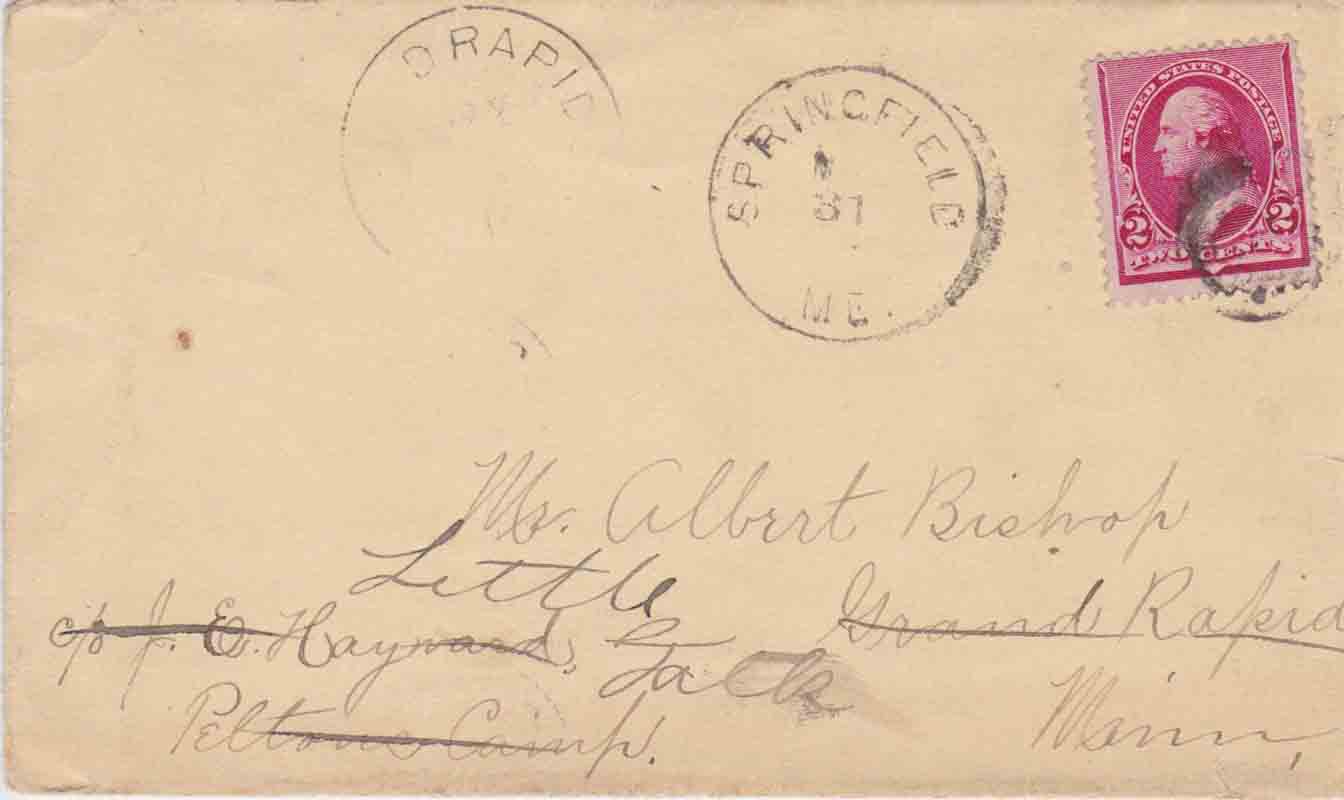 D RAPID
SPRINGFIELD
31
ME.
UNITED STATES POSTAGE
2 2
TWO CENTS
Mr. Albert Bishop
Little
c/o J. E. Hayward, Grand Rapid
Falls
Peltons Camp. Minn,